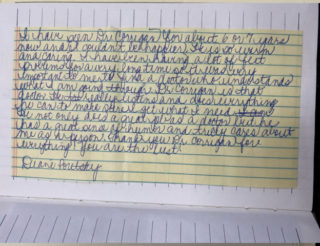 I have seen Dr Corrigan for about 6 or 7 years
now and I couldn't be happier. He is so warm
and caring. I have been having a lot of feet
problems for a very long time so it was very
important to me to find a doctor who understands
what I am going through Dr Corrigan is that
doctor. He really listens and does everything
he can to make sure I get what I need.
He not only does a great job as a doctor but he
has a great sense of humor and truly cares about
me as a person. Thank you Dr Corrigan for
everything! You are the best!
Duane